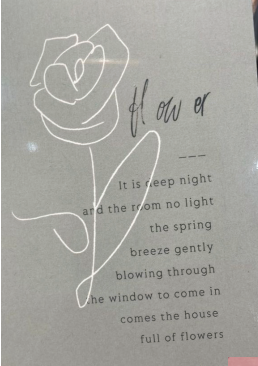 flower
It is deep night
and the room no light
the spring
breeze gently
blowing through
the window to come in
comes the house
full of flowers